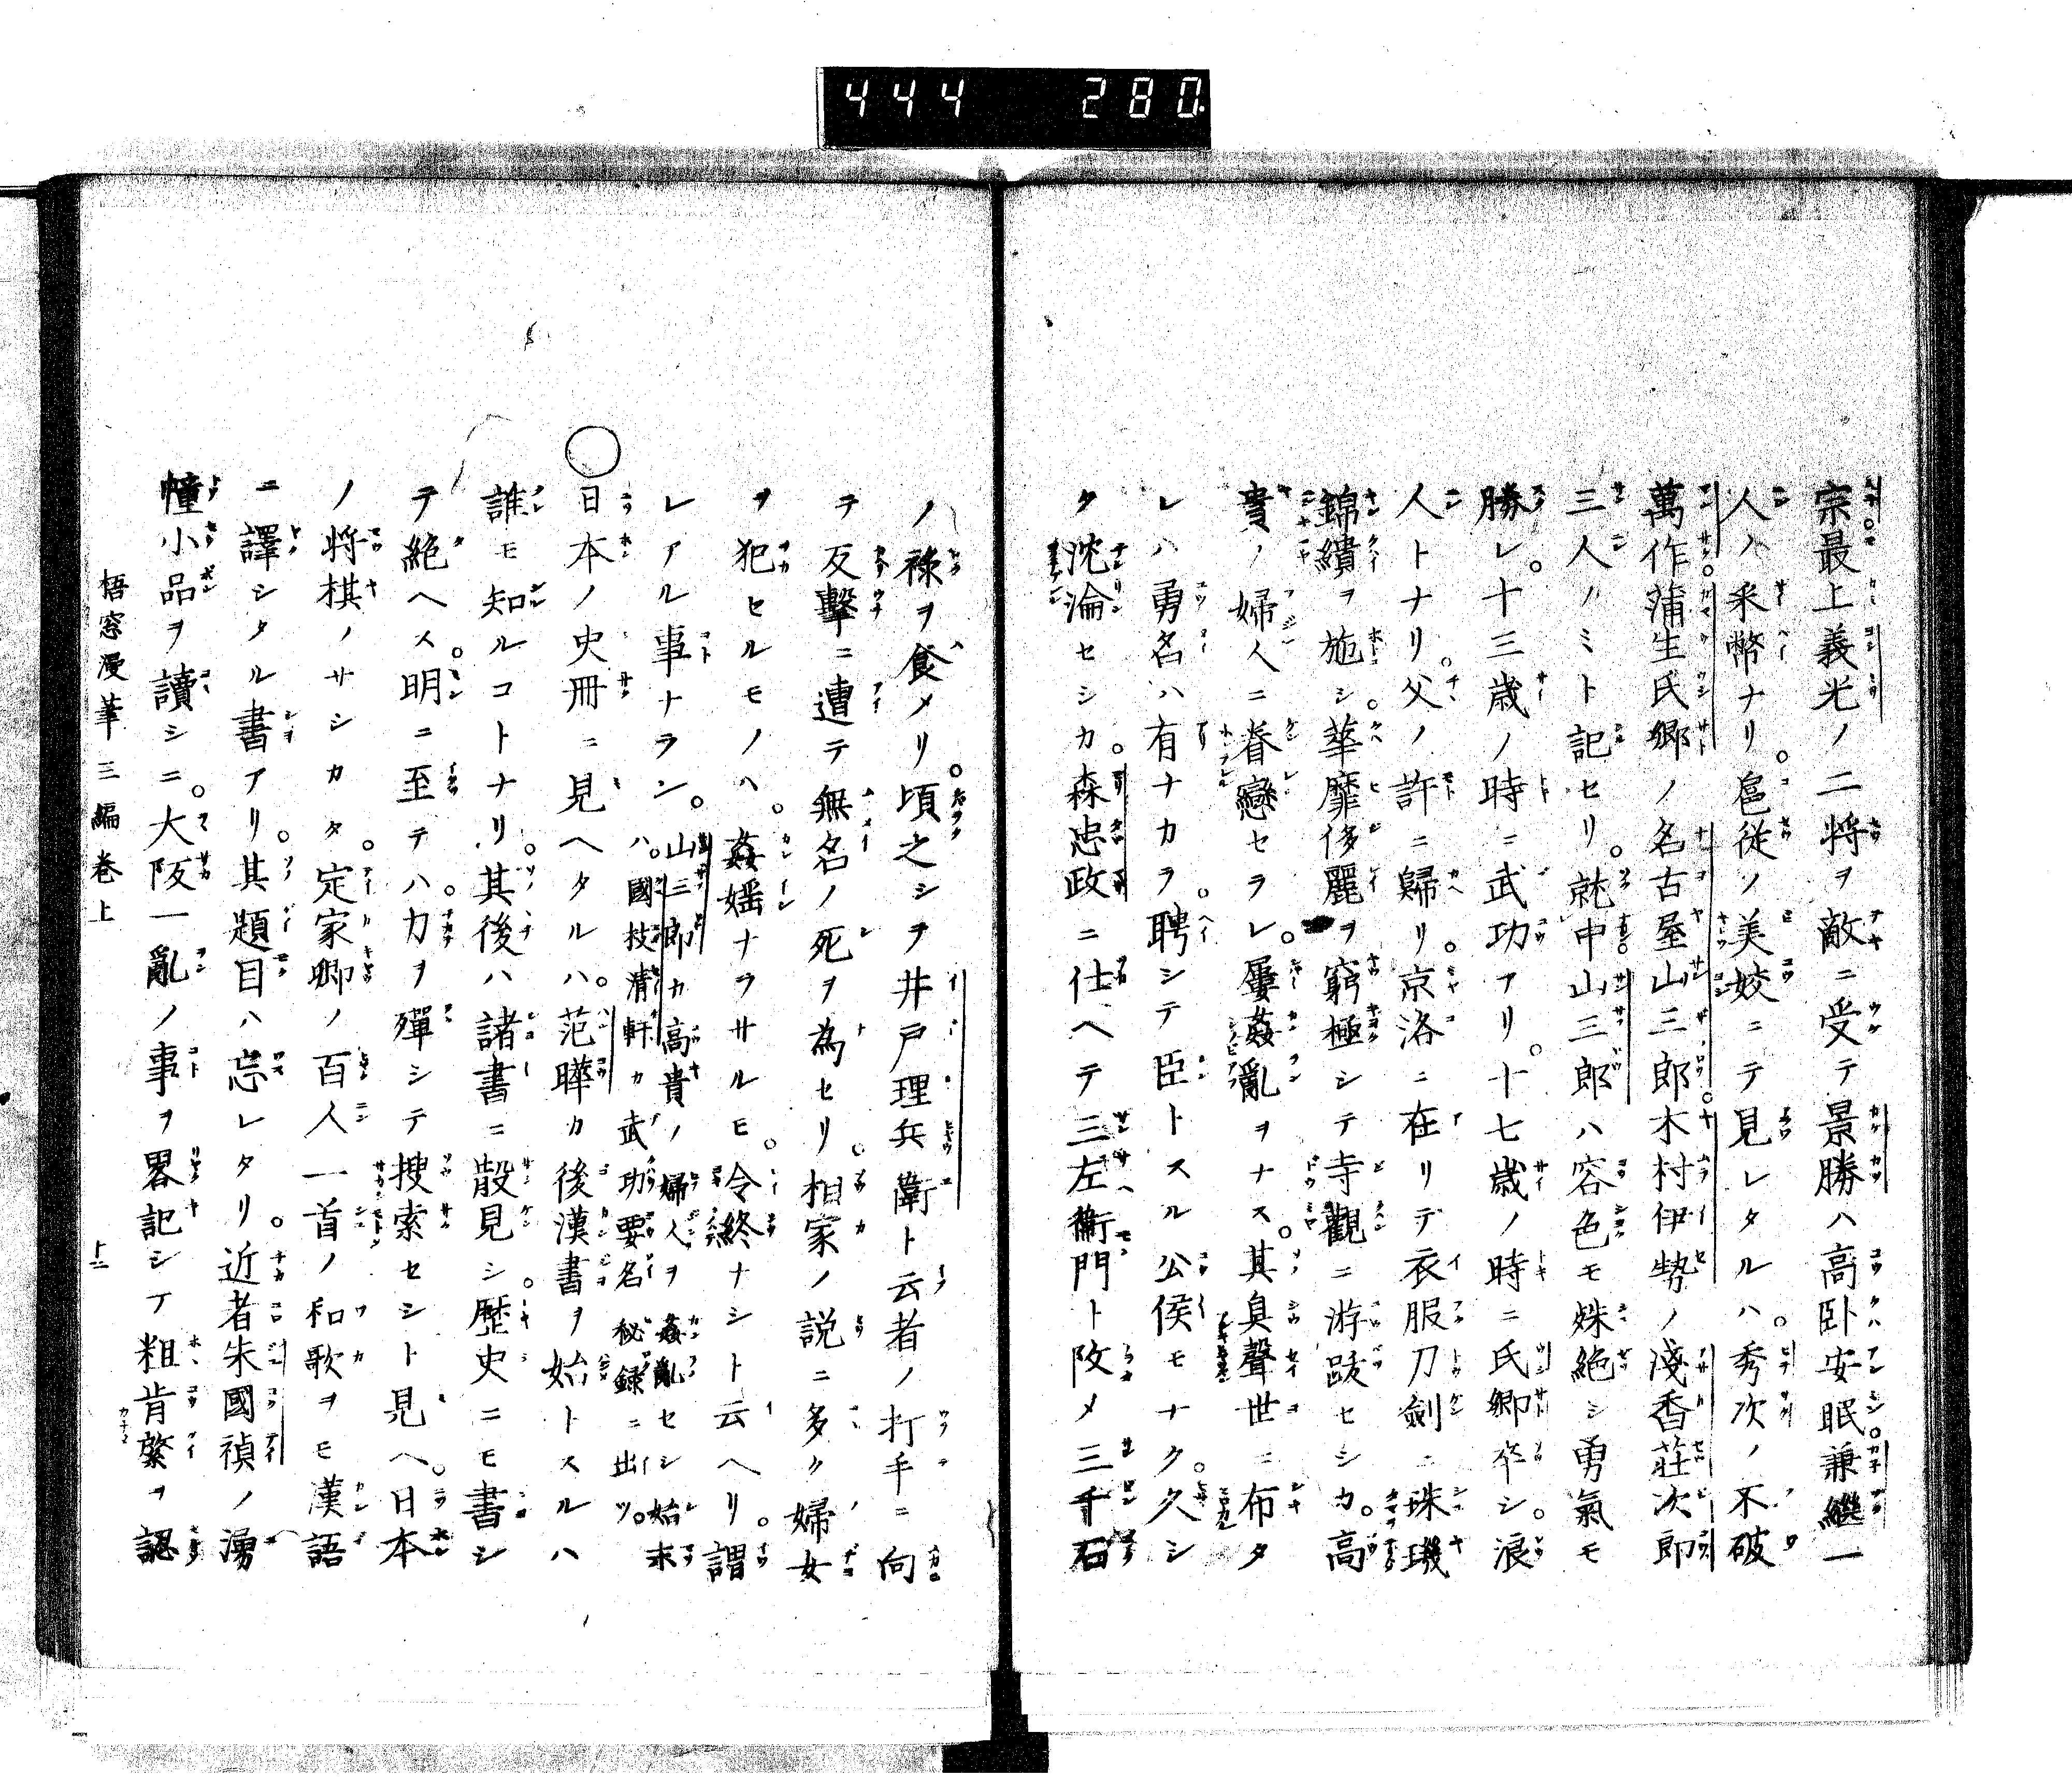 444 280
宗最上義光ノ二将ヲ敵ニ受テ景勝ハ高臥安眠兼繼一
人ノ釆幣ナリ。扈従ノ美姣ニテ見レタルハ。秀次ノ不破
萬作。蒲生氏郷ノ名古屋山三郎。木村伊勢ノ淺香荘次郎
三人ノミト記セリ。就中。山三郎ハ容色モ姝絶シ勇氣モ
勝レ。十三歳ノ時ニ武功アリ。十七歳ノ時ニ氏卿卒シ。浪
人トナリ。父ノ許ニ歸リ。京洛ニ在リテ衣服刀劍ニ珠璣
錦繢ヲ施シ。華靡侈麗ヲ窮極シテ寺觀ニ游跋セシカ。高
貴ノ婦人ニ眷戀セラレ。屢姦亂ヲナス。其臭聲世ニ布タ
レハ勇名ハ有ナカラ。聘シテ臣トスル公侯モナク。久シ
ク沈淪セシカ。森忠政ニ仕ヘテ三左衞門ト攺メ三千石
ノ祿ヲ食メリ。頃之シヲ井戸理兵衞ト云者ノ打手ニ向
テ反擊ニ遭テ無名ノ死ヲ為セリ。相家ノ説ニ多ク婦女
ヲ犯セルモノハ。姦婬ナラサルモ。令終ナシト云ヘリ。謂
レアル事ナラン。山三郎カ高貴ノ婦人ヲ姦亂セシ始末
ハ。國技淸軒カ武功要名秘録ニ出ツ。
日本ノ史冊ニ見ヘタルハ。范曄カ後漢書ヲ始トスルハ
誰モ知ルコトナリ。其後ハ諸書ニ散見シ。歴史ニモ書シ
テ絶ヘス。明ニ至テハ。力ヲ殫シテ搜索セシト見ヘ。日本
ノ将棋ノサシカタ。定家卿ノ百人一首ノ和歌ヲモ漢語
ニ譯シタル書アリ。其題目ハ忘レタリ。近者朱國禎ノ湧
幢小品ヲ讀シニ。大阪一亂ノ事ヲ畧記シテ粗肯綮ヲ認
梧窓漫筆三編巻上 十二